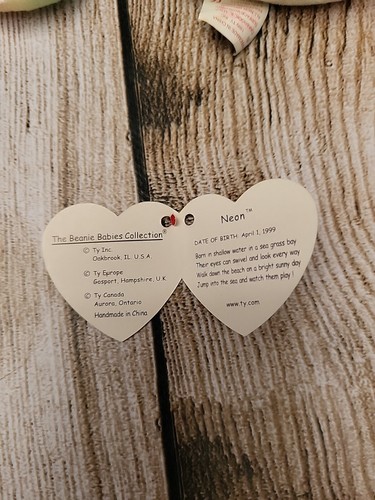 The Beanie Babies Collection®
© Ty Inc.
Oakbrook, IL. U.S.A.
© Ty Europe
Gosport, Hampshire, U.K
© Ty Canada
Aurora, Ontario
Handmade in China
Neon™
DATE OF BIRTH: April 1, 1999
Born in shallow water in a sea grass bay
Their eyes can swivel and look every way
Walk down the beach on a bright sunny day
Jump into the sea and watch them play !
www.ty.com